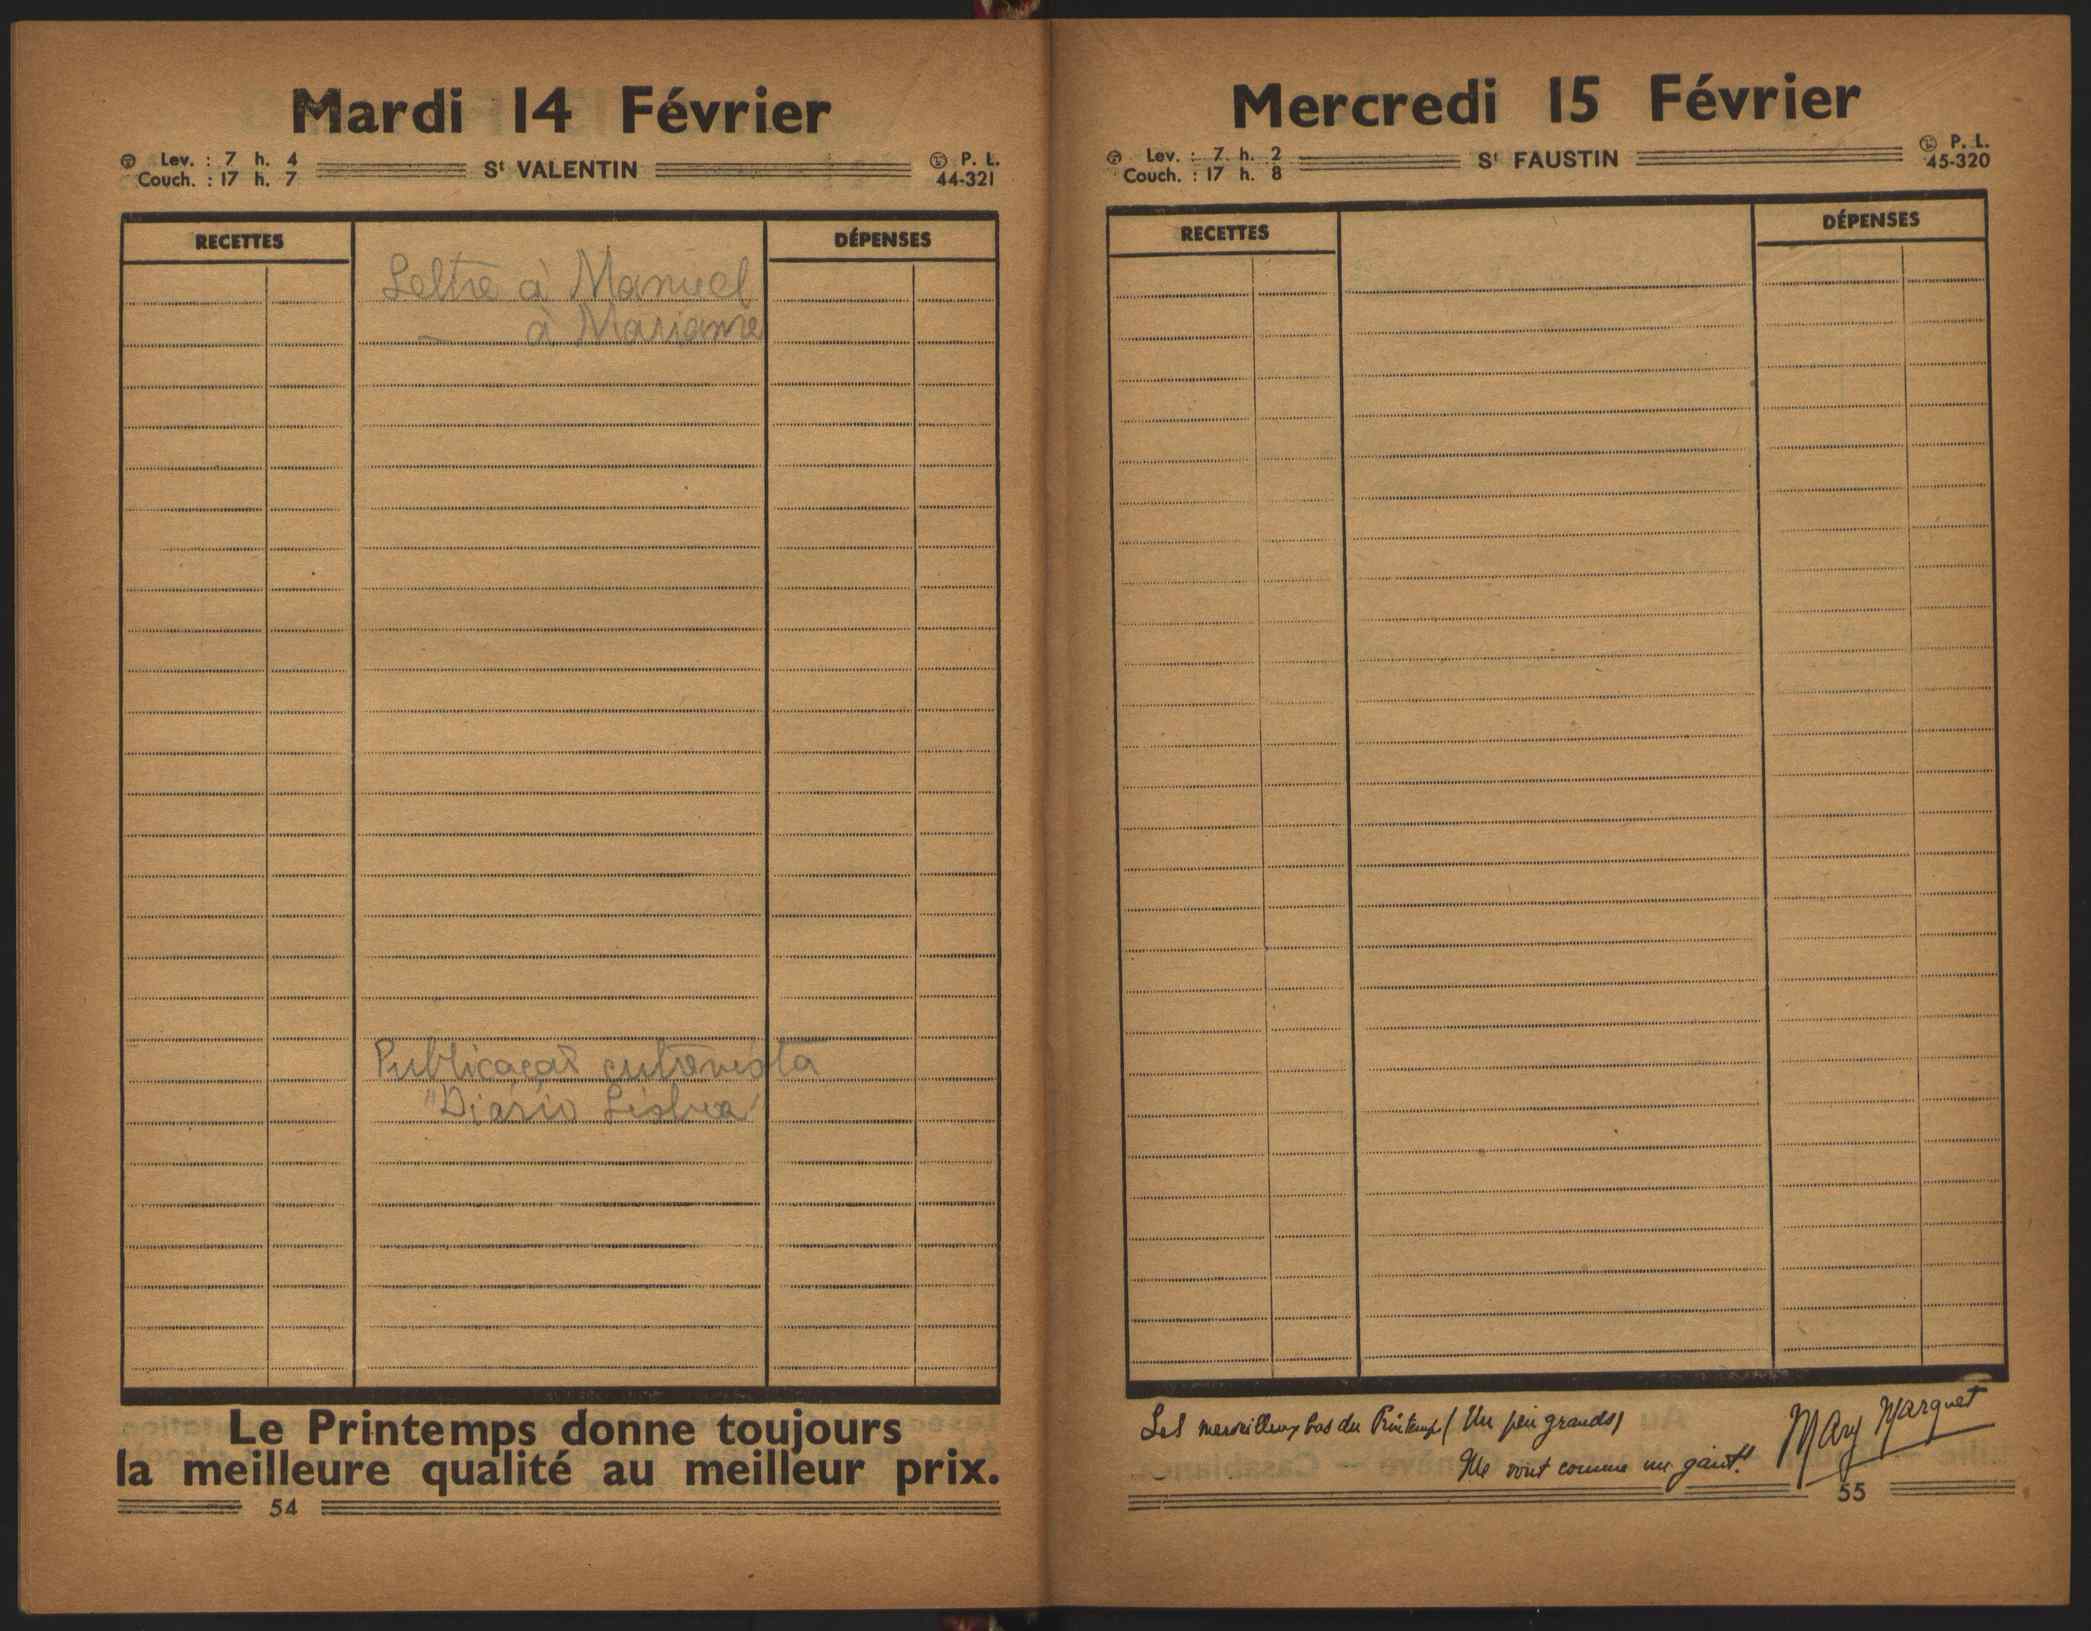 Mardi 14 Février
Lev. : 7 h. 4
Couch. : 17 h. 7
St VALENTIN
P. L.
44-321
RECETTES
DÉPENSES
Lettre à Manuel
— à Marianne
Publicaçaõ entrevista
"Diário Lisboa"
Le Printemps donne toujours
la meilleure qualité au meilleur prix.
54
Mercredi 15 Février
Lev. : 7 h. 2
Couch. : 17 h. 8
St FAUSTIN
P. L.
45-320
RECETTES
DÉPENSES
Les merveilleux bas du Printemps (Un peu grands)
Me vont comme un gant!
Mary Marquet
55